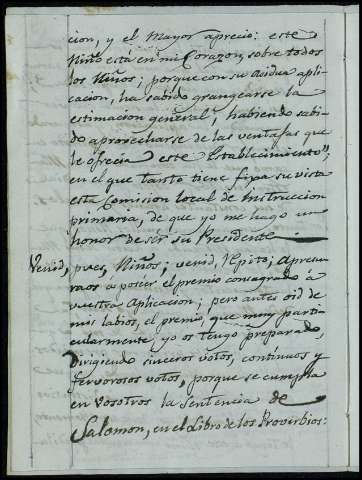 cion, y el Mayor aprecio: este
Niño está en mi Corazon, sobre todos
los Niños; porque con su asidua apli-
cacion, ha sabido grangearse la
estimacion general, habiendo sabi-
do aprovecharse de las ventajas que
le ofrecia este Establecimiento",
en el que tanto tiene fixa su vista
esta Comision local de Instruccion
primaria, de que yo me hago un
honor de sér su Presidente
Venid, pues, Niños; venid, repito; Apresu-
raos a poseer el premio consagrado á
vuestra Aplicacion; pero antes oid de
mis labios, el premio, que muy parti-
cularmente, yo os tengo preparado,
Dirigiendo sinceros votos, contínuos y
fervorosos votos, porque se cumpla
en Vosotros la Sentencia de
Salomon, en el Libro de los Proverbios: